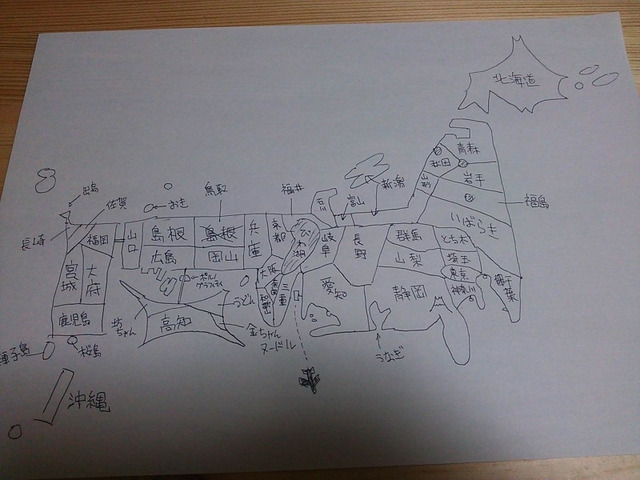 北海道
青森
秋田
岩手
山形
福島
いばらき
新潟
富山
石川
福井
鳥取
おき
出島
佐賀
長崎
福岡
山口
島根
島根
兵庫
京都
びわ湖
岐阜
長野
群馬
とち木
広島
岡山
山梨
埼玉
東京
神奈川
千葉
宮城
大府
大阪
三重
愛知
静岡
うどん
高知
坊ちゃん
金ちゃん
ヌードル
うなぎ
鹿児島
種子島
桜島
沖縄